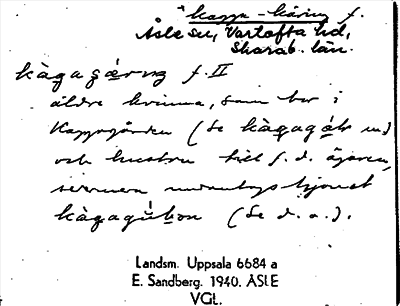 kappe-käring f.
Åsle sn, Vartofta hd,
Skarab. län.
kàgagæ̀rıng f. II
äldre kvinna, som bor i
Kappagården (Se kàgagá
och hustru till f.d. ägaren,
kàgagúbon (Se d.o.).
Landsm. Uppsala 6684 a
E. Sandberg. 1940. ÅSLE
VGL.